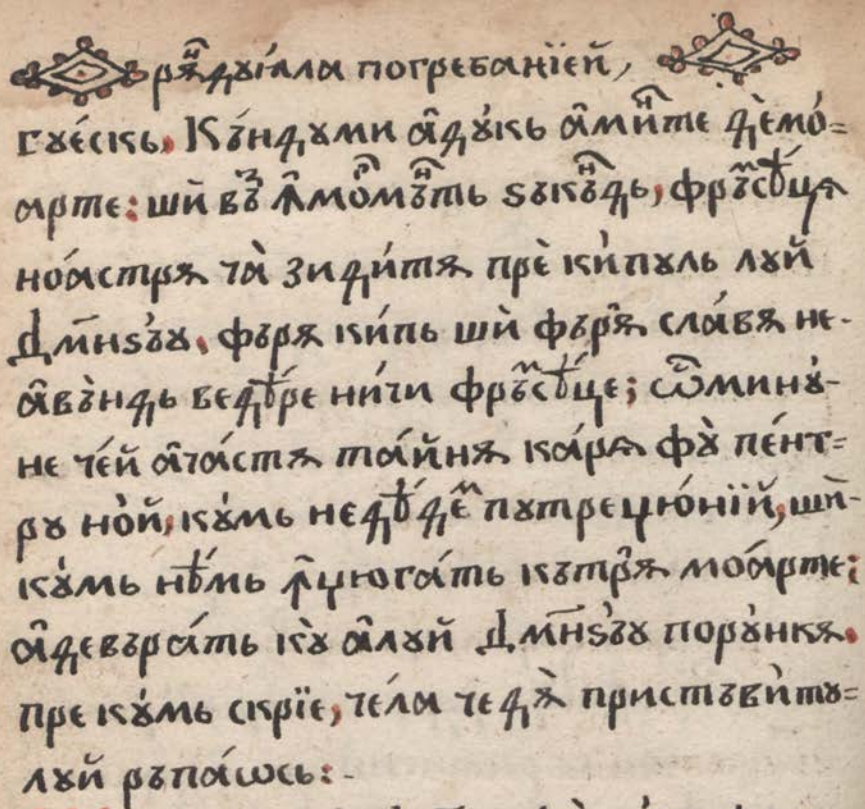 рѧ҆ⷩ҇дꙋꙗ́ла погребанїей,
гꙋе́скь, Къ́ндꙋми а҆дꙋ́кь а҆ми́ⷩ҇те дѐмо́=
арте: шѝ въ́ⷥ ꙟ҆мо́ⷬ҇мъ́ⷩ҇ть ѕꙋкъ́ⷩ҇дь, фрꙋ́ⷨ҇сѣ́ца
ноа́стрѧ ча̀ зиди́тѧ прѐ ки́пꙋль лꙋй
Дм҃нѕъ́ꙋ, фърѧ ки́пь шѝ фърѧ̀ сла́вѧ не-
а҆въ́ндь ведѣ́ре ни́чи фрꙋ́ⷨ҇сѣ́це; ѽминꙋ́-
не че́й а҆ча́стѧ та́йнѧ ка́рѧ фꙋ̀ пе́нт=
рꙋ но́й, кꙋ́мь недѣ́де́ⷨ пꙋтреџю́нїй, шѝ-
кꙋ́мь нѣ́мь ꙟ҆џюга́ть кътрѧ̀ моа́рте;
а҆девъра́ть кꙋ̀ а҆лꙋй Дм҃нѕъ́ꙋ порꙋ́нкѧ.
пре кꙋ́мь скрїе, че́ла че дѧ̀ пристъви́тꙋ=
лꙋй ръпа́ѡсь: -